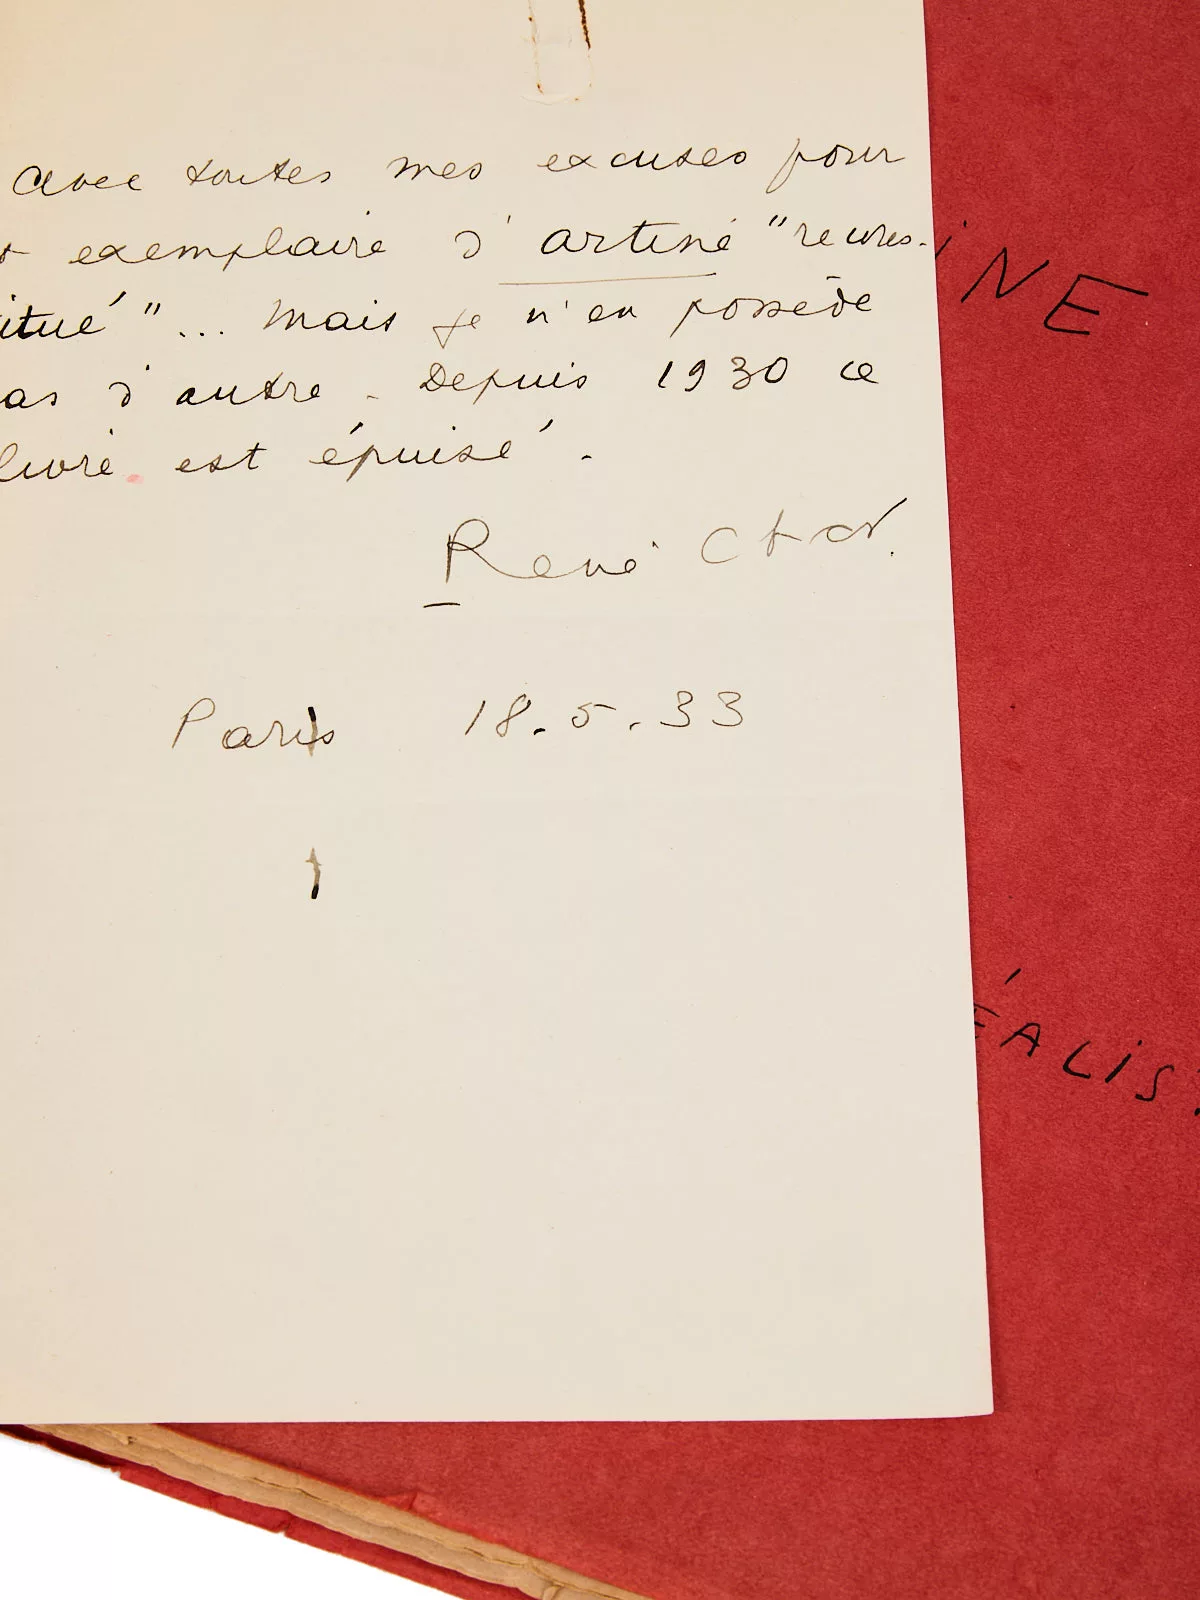 Avec toutes mes excuses pour
exemplaire d'artine "recons-
itué"... Mais je n'en possède
as d'autre. Depuis 1930 ce
livre est épuisé.
René Char.
Paris 18.5.33
INE
ÉALIS